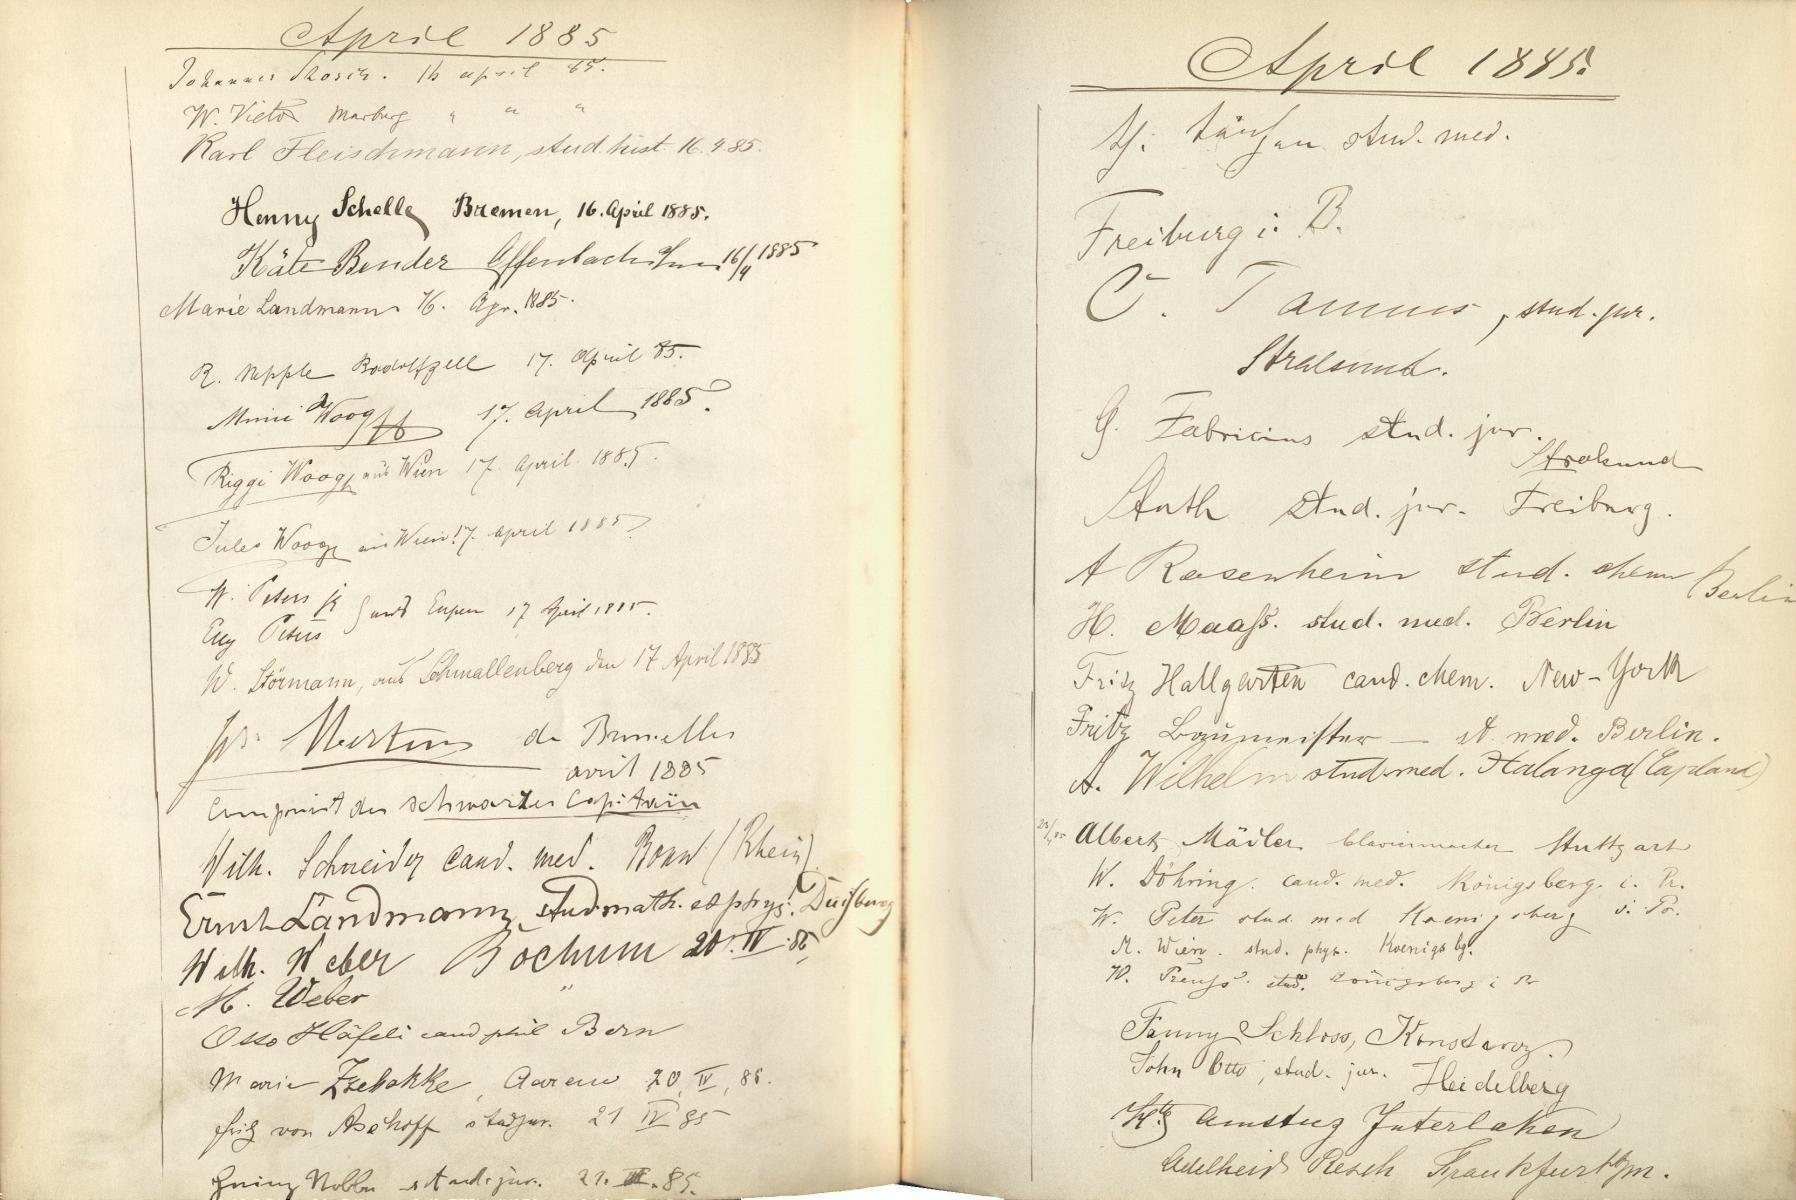 April 1885
Johannes 16 april 85.
W. Vietor Marburg " " "
Karl Fleischmann, stud. hist. 16. 4 85.
Henny Schelle Bremen, 16. April 1885.
Käte Bender Offenbach a/Main 16/4 1885
Marie Landmann 16. Apr. 1885.
R. Nepple Radolfzell 17. April 85.
Mimi Woog 17. April 1885.
Riggi Woog aus Wien 17. April 1885.
Jules Woog aus Wien 17. April 1885
W. Peters jr
Eug Peters } aus Eupen 17 April 1885.
W. Störmann, aus Schmallenberg den 17 April 1885
Jos. Mertens de Bruxelles
avril 1885
componist des schwarzen Capitain
Wilh. Schneider cand. med. Bonn (Rhein)
Ernst Landmann, stud. math. et phys. Duisburg
Wilh. Weber Bochum 20. IV. 85
M. Weber "
Otto Häfeli cand phil Bern
Marie Zschokke, Aarau 20, IV, 85.
Fritz von Aschoff stud jur. 21 IV 85
stud. jur. 21. IV. 85.
April 1885.
stud. med.
Freiburg i. B.
C. Tamms, stud. jur.
Stralsund.
G. Fabricius stud. jur.
Stralsund
stud. jur. Freiburg.
A Rosenheim stud. chem Berlin
H. Maaß. stud. med. Berlin
Fritz Hallgarten cand. chem. New-York
Fritz Baumeister — st. med. Berlin.
A. Wilhelm stud med. Kalanga (Capland)
Albert Mädler Claviermacher Stuttgart
W. Döhring. cand. med. Königsberg. i. Pr.
W. Peter stud. med Koenigsberg i. Pr.
M. Wien. stud. phys. Koenigsbg.
W. Preuß. stud. Königsberg i Pr
Fanny Schloss, Konstanz.
John Otto, stud. jur. Heidelberg
Amstutz Interlaken
Adelheid Resch Frankfurt a/m.